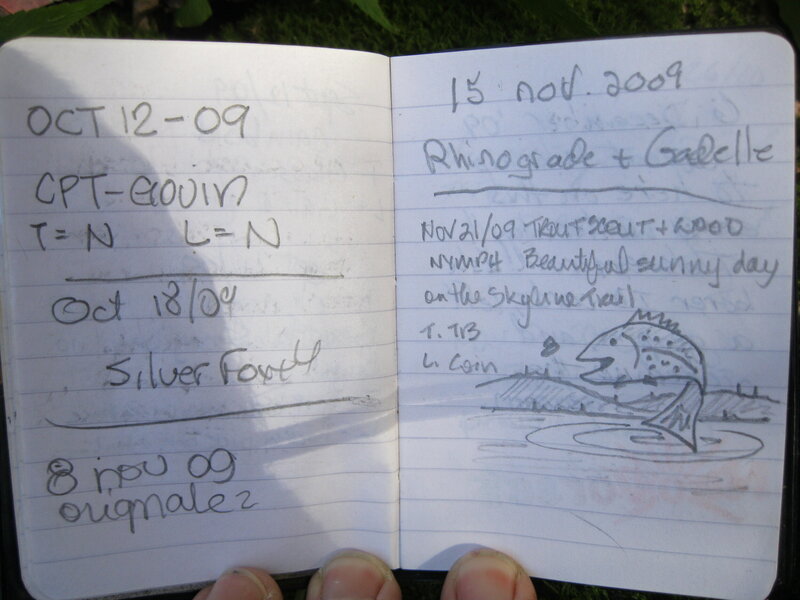 OCT 12-09
CPT-
T=N L=N
Oct 18/09
Silver Fox+4
8 nov 09
orignale2
15 nov. 2009
Rhinograde + Gabelle
NOV 21/09 TROUTSCOUT + WOOD
NYMPH Beautiful sunny day
on the Skyline Trail
T. TB
L. Coin